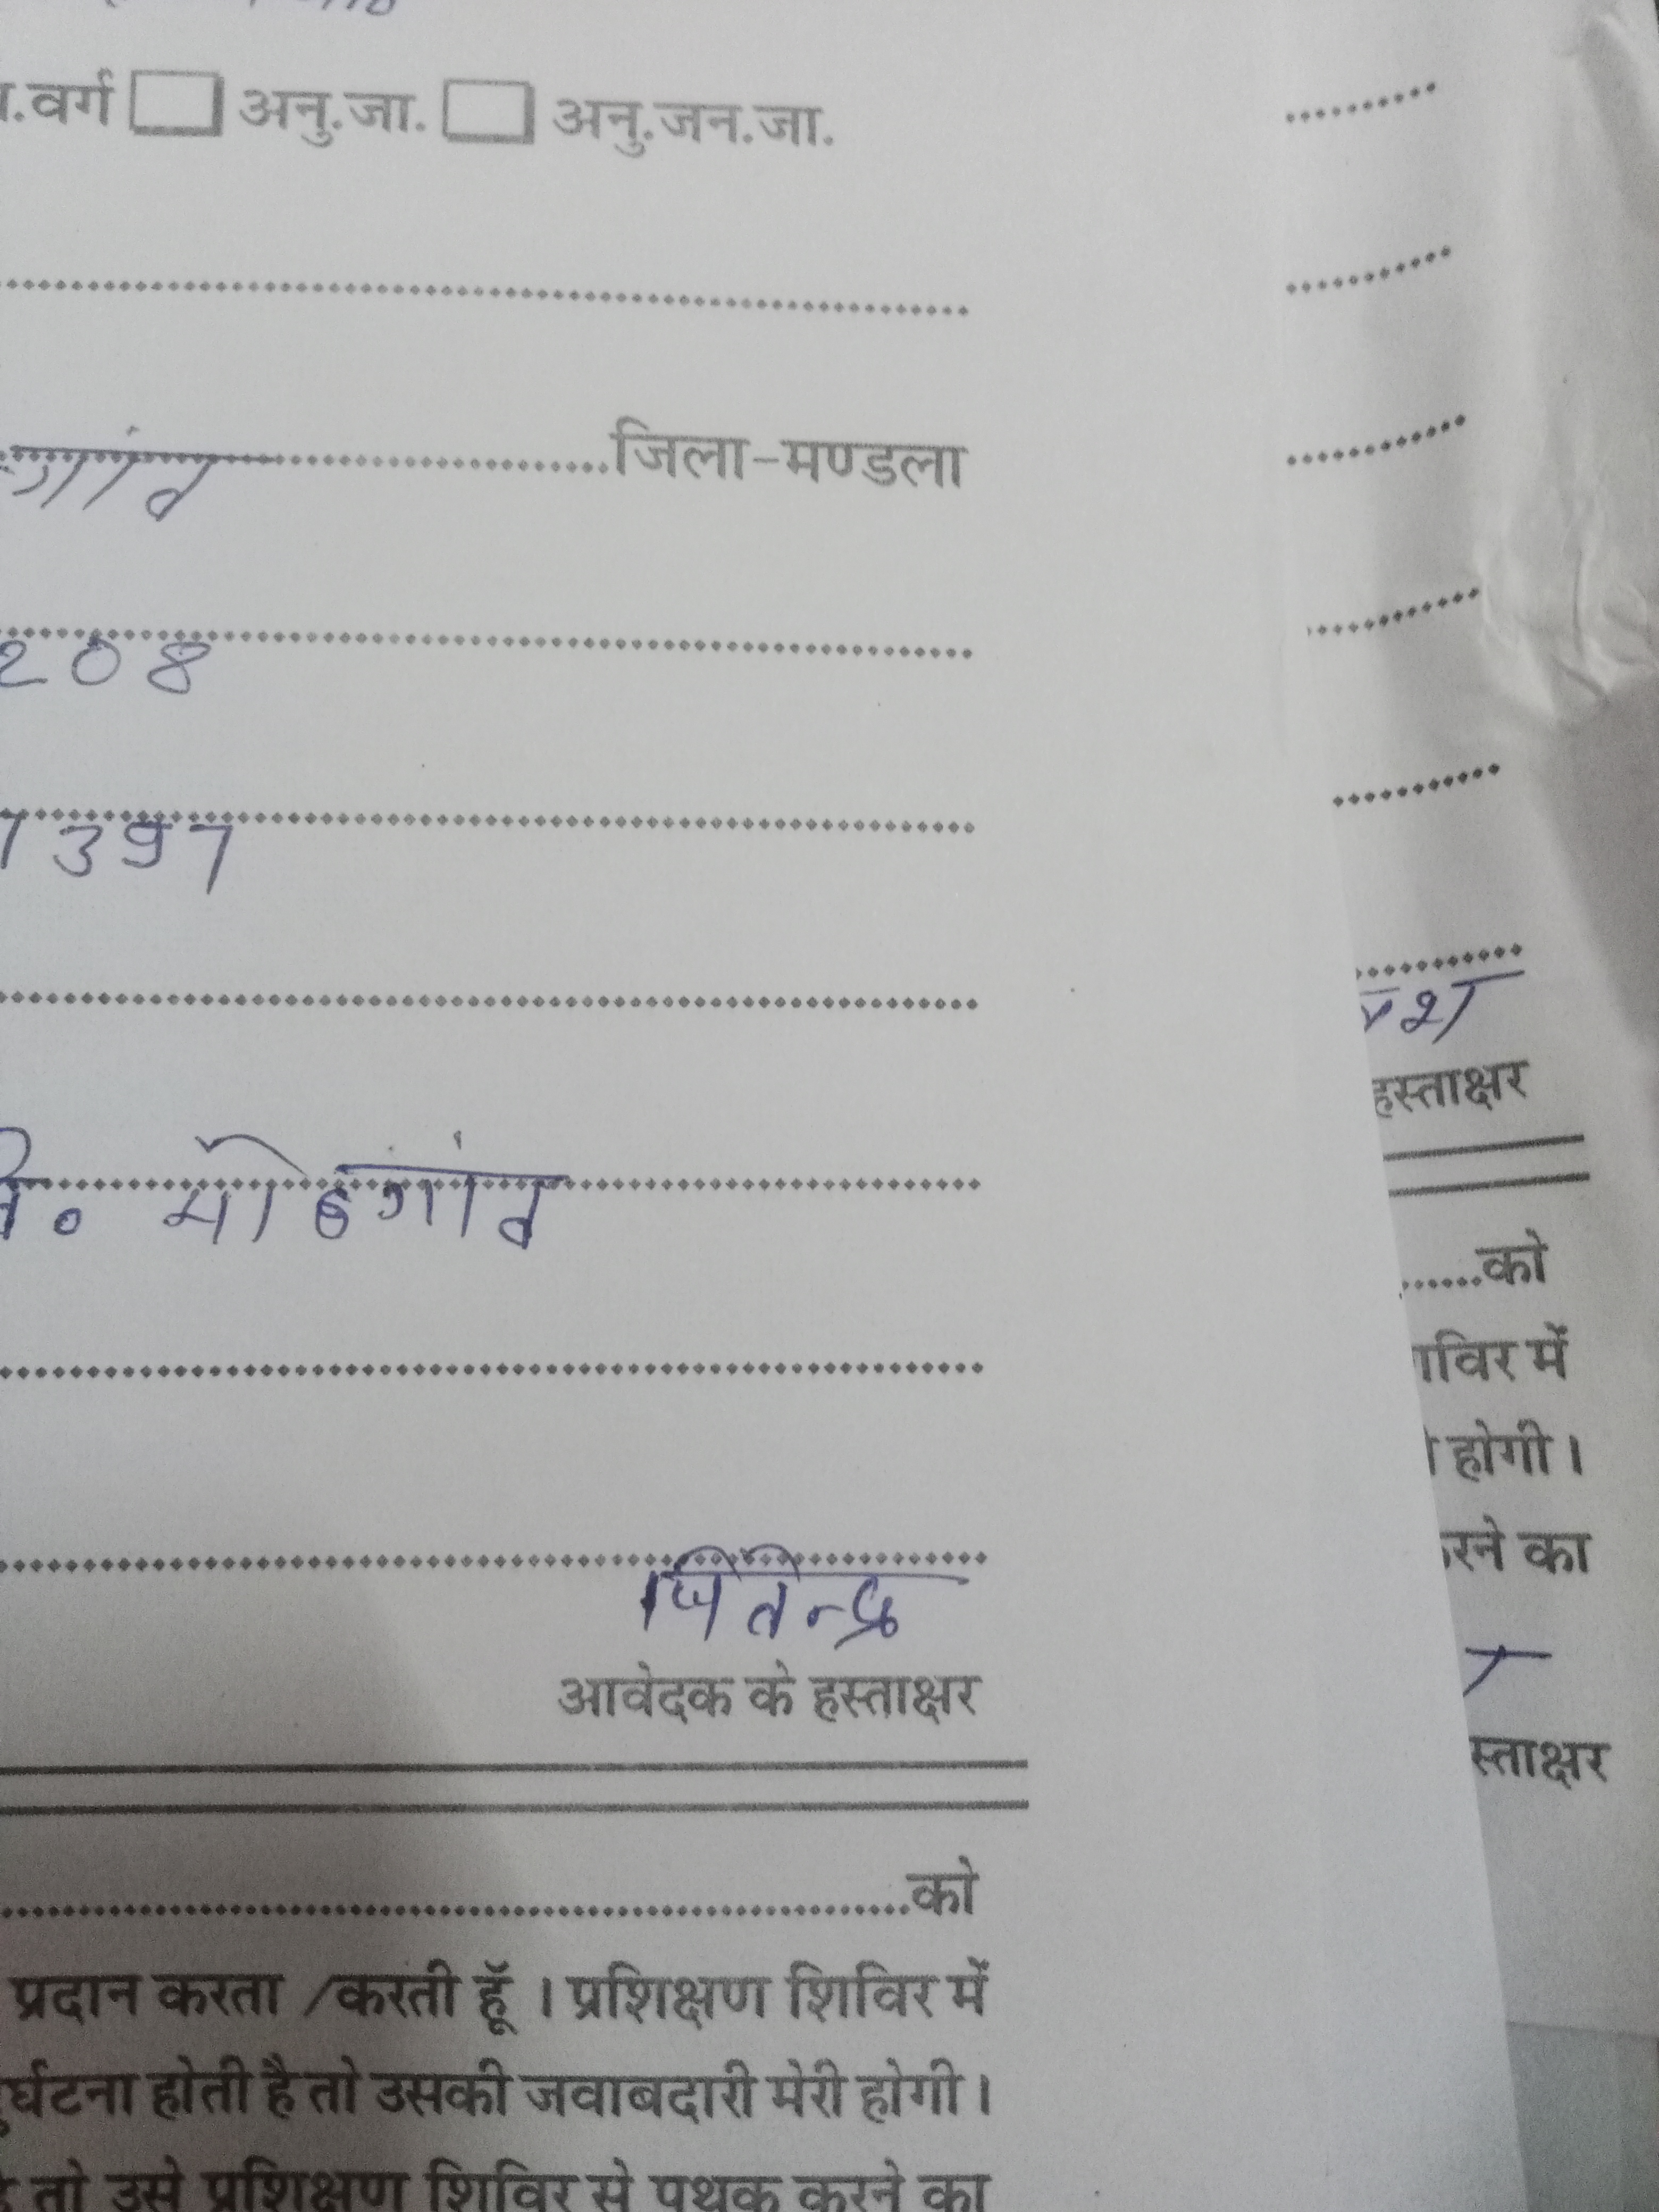 .वर्ग अनु.जा. अनु.जन.जा.
गांव जिला-मण्डला
208
7397
मोहगांव
जितेन्द्र
आवेदक के हस्ताक्षर
को
प्रदान करता /करती हूँ । प्रशिक्षण शिविर में
दुर्घटना होती है तो उसकी जवाबदारी मेरी होगी।
तो उसे प्रशिक्षण शिविर से पृथक करने का
हस्ताक्षर
को
शिविर में
होगी।
करने का
हस्ताक्षर